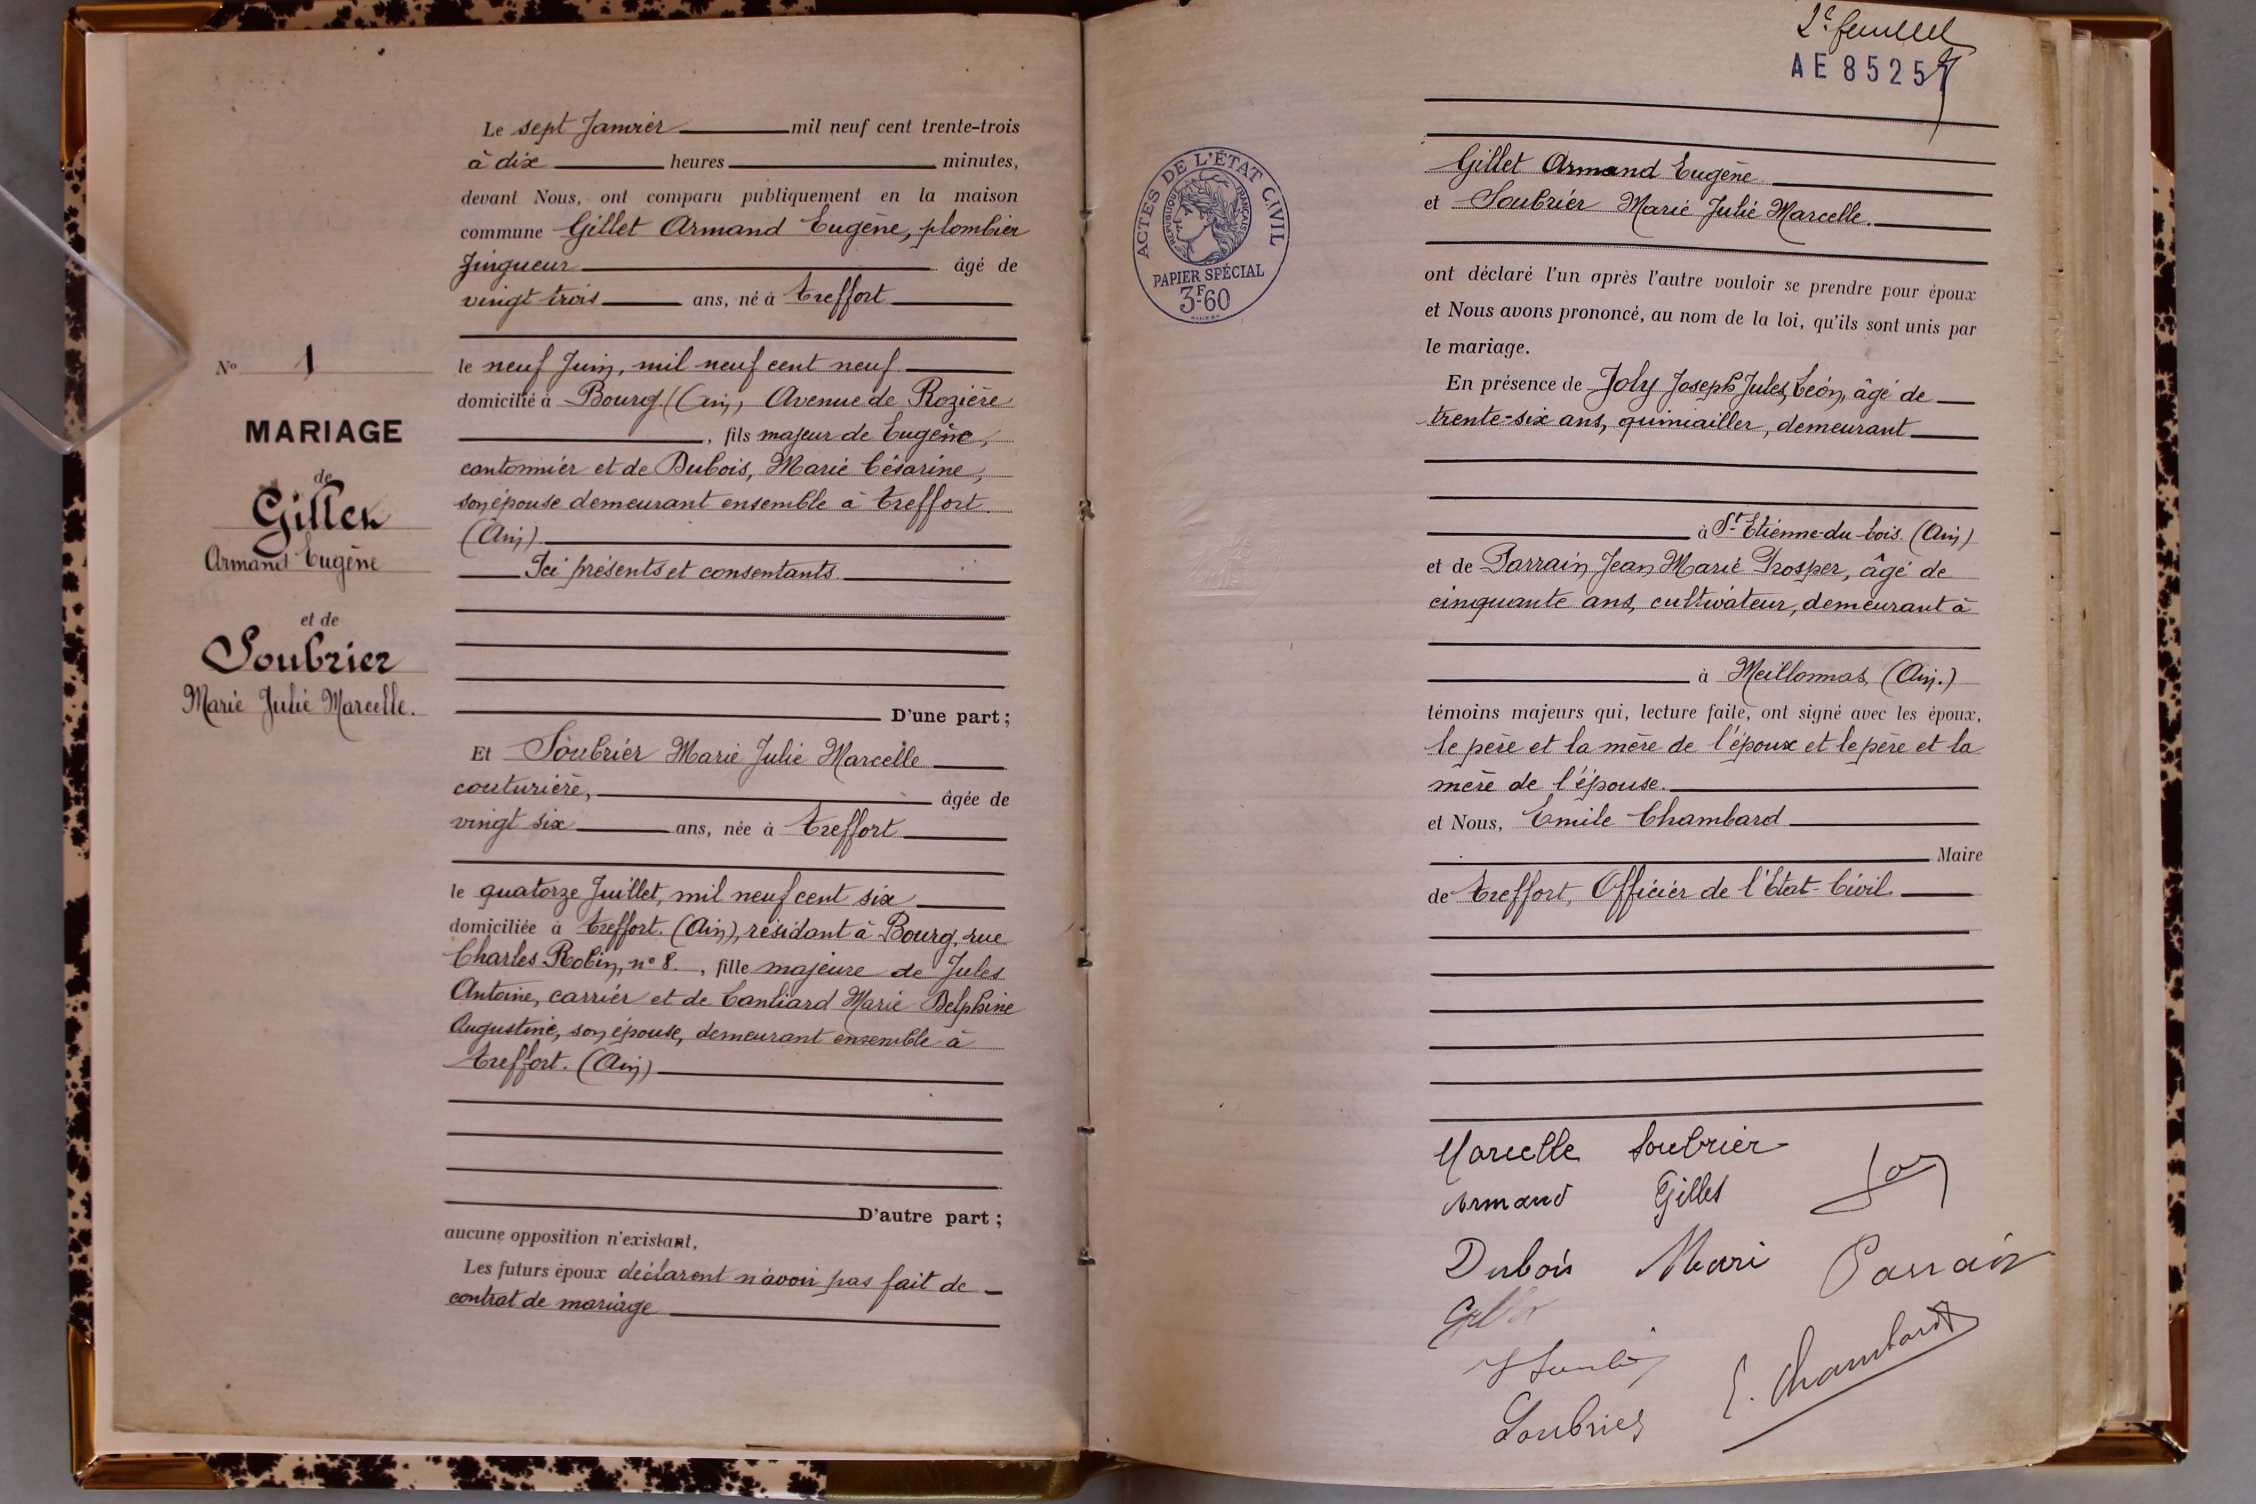 Nº 1
MARIAGE
de
Gillet
Armand Eugène
et de
Soubrier
Marie Julie Marcelle.
Le sept Janvier mil neuf cent trente-trois
à dix heures minutes,
devant Nous, ont comparu publiquement en la maison
commune Gillet Armand Eugène, plombier
Zingueur âgé de
vingt trois ans, né à Treffort
le neuf Juin, mil neuf cent neuf
domicilié à Bourg (Ain), Avenue de Rozière
, fils majeur de Eugène,
cantonnier et de Dubois, Marie Césarine,
son épouse demeurant ensemble à Treffort.
(Ain)
Ici présents et consentants.
D'une part ;
Et Soubrier Marie Julie Marcelle
couturière, âgée de
vingt six ans, née à Treffort
le quatorze Juillet, mil neuf cent six
domiciliée à Treffort. (Ain), résidant à Bourg, rue
Charles Robin, nº 8. , fille majeure de Jules
Antoine, carrier et de Cantiard Marie Delphine
Augustine, son épouse, demeurant ensemble à
Treffort. (Ain)
D'autre part ;
aucune opposition n'existant,
Les futurs époux déclarent n'avoir pas fait de
contrat de mariage
2e feuillet
AE 8525
ACTES DE L'ÉTAT CIVIL
RÉPUBLIQUE FRANÇAISE
PAPIER SPÉCIAL
3F.60
Gillet Armand Eugène
et Soubrier Marie Julie Marcelle.
ont déclaré l'un après l'autre vouloir se prendre pour époux
et Nous avons prononcé, au nom de la loi, qu'ils sont unis par
le mariage.
En présence de Joly Joseph Jules, Léon, âgé de
trente-six ans, quincailler, demeurant
à St Etienne-du-bois (Ain)
et de Parrain Jean Marie Prosper, âgé de
cinquante ans, cultivateur, demeurant à
à Meillonnas, (Ain.)
témoins majeurs qui, lecture faite, ont signé avec les époux,
le père et la mère de l'époux et le père et la
mère de l'épouse.
et Nous, Emile Chambard
Maire
de Treffort, Officier de l'Etat-Civil.
Marcelle Soubrier
Armand Gillet
Dubois Mari Parrain
Gillet
Soubrier
E. Chambard